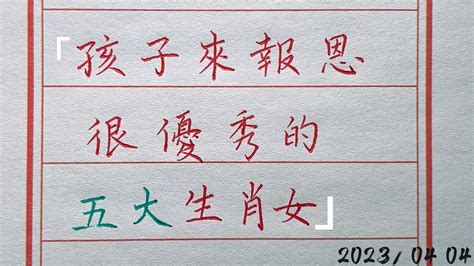 「孩子來報恩
很優秀的
五大生肖女」
2023/04 04